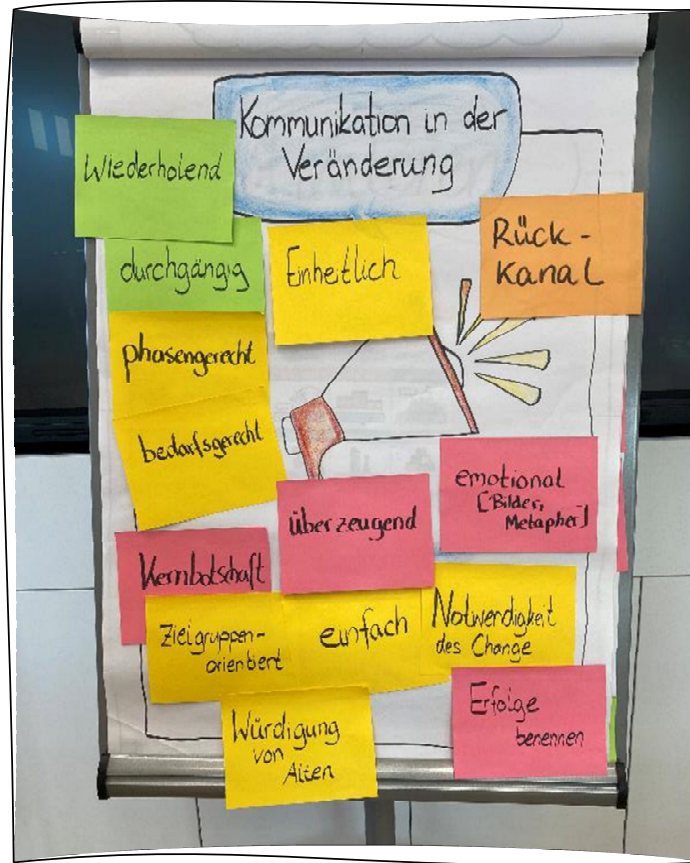 Kommunikation in der
Veränderung
Wiederholend
durchgängig
Einheitlich
Rück-
kanal
phasengerecht
bedarfsgerecht
emotional
[Bilder,
Metapher]
überzeugend
Kernbotschaft
Zielgruppen-
orientiert
einfach
Notwendigkeit
des Change
Erfolge
benennen
Würdigung
von
Alten